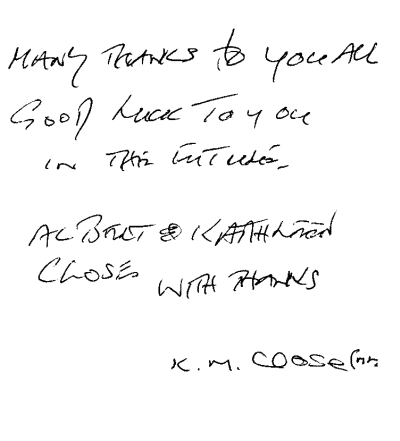 MANY THANKS to YOU ALL
GOOD LUCK TO YOU
IN THE FUTURE.
ALBERT & KATHLEEN
CLOSE
WITH THANKS
K. M. CLOSE